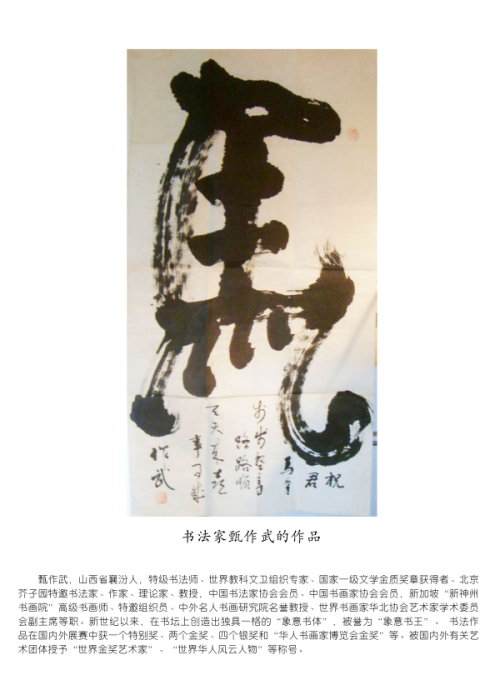 祝
君
马年
步步登高
路路顺
天天喜
事事成
作武
书法家甄作武的作品
甄作武，山西省襄汾人，特级书法师、世界教科文卫组织专家、国家一级文学金质奖章获得者、北京
芥子园特邀书法家、作家、理论家、教授，中国书法家协会会员、中国书画家协会会员，新加坡“新神州
书画院”高级书画师、特邀组织员、中外名人书画研究院名誉教授、世界书画家华北协会艺术家学术委员
会副主席等职。新世纪以来，在书坛上创造出独具一格的“象意书体”，被誉为“象意书王”。 书法作
品在国内外展赛中获一个特别奖、两个金奖、四个银奖和“华人书画家博览会金奖”等。被国内外有关艺
术团体授予“世界金奖艺术家”、“世界华人风云人物”等称号。